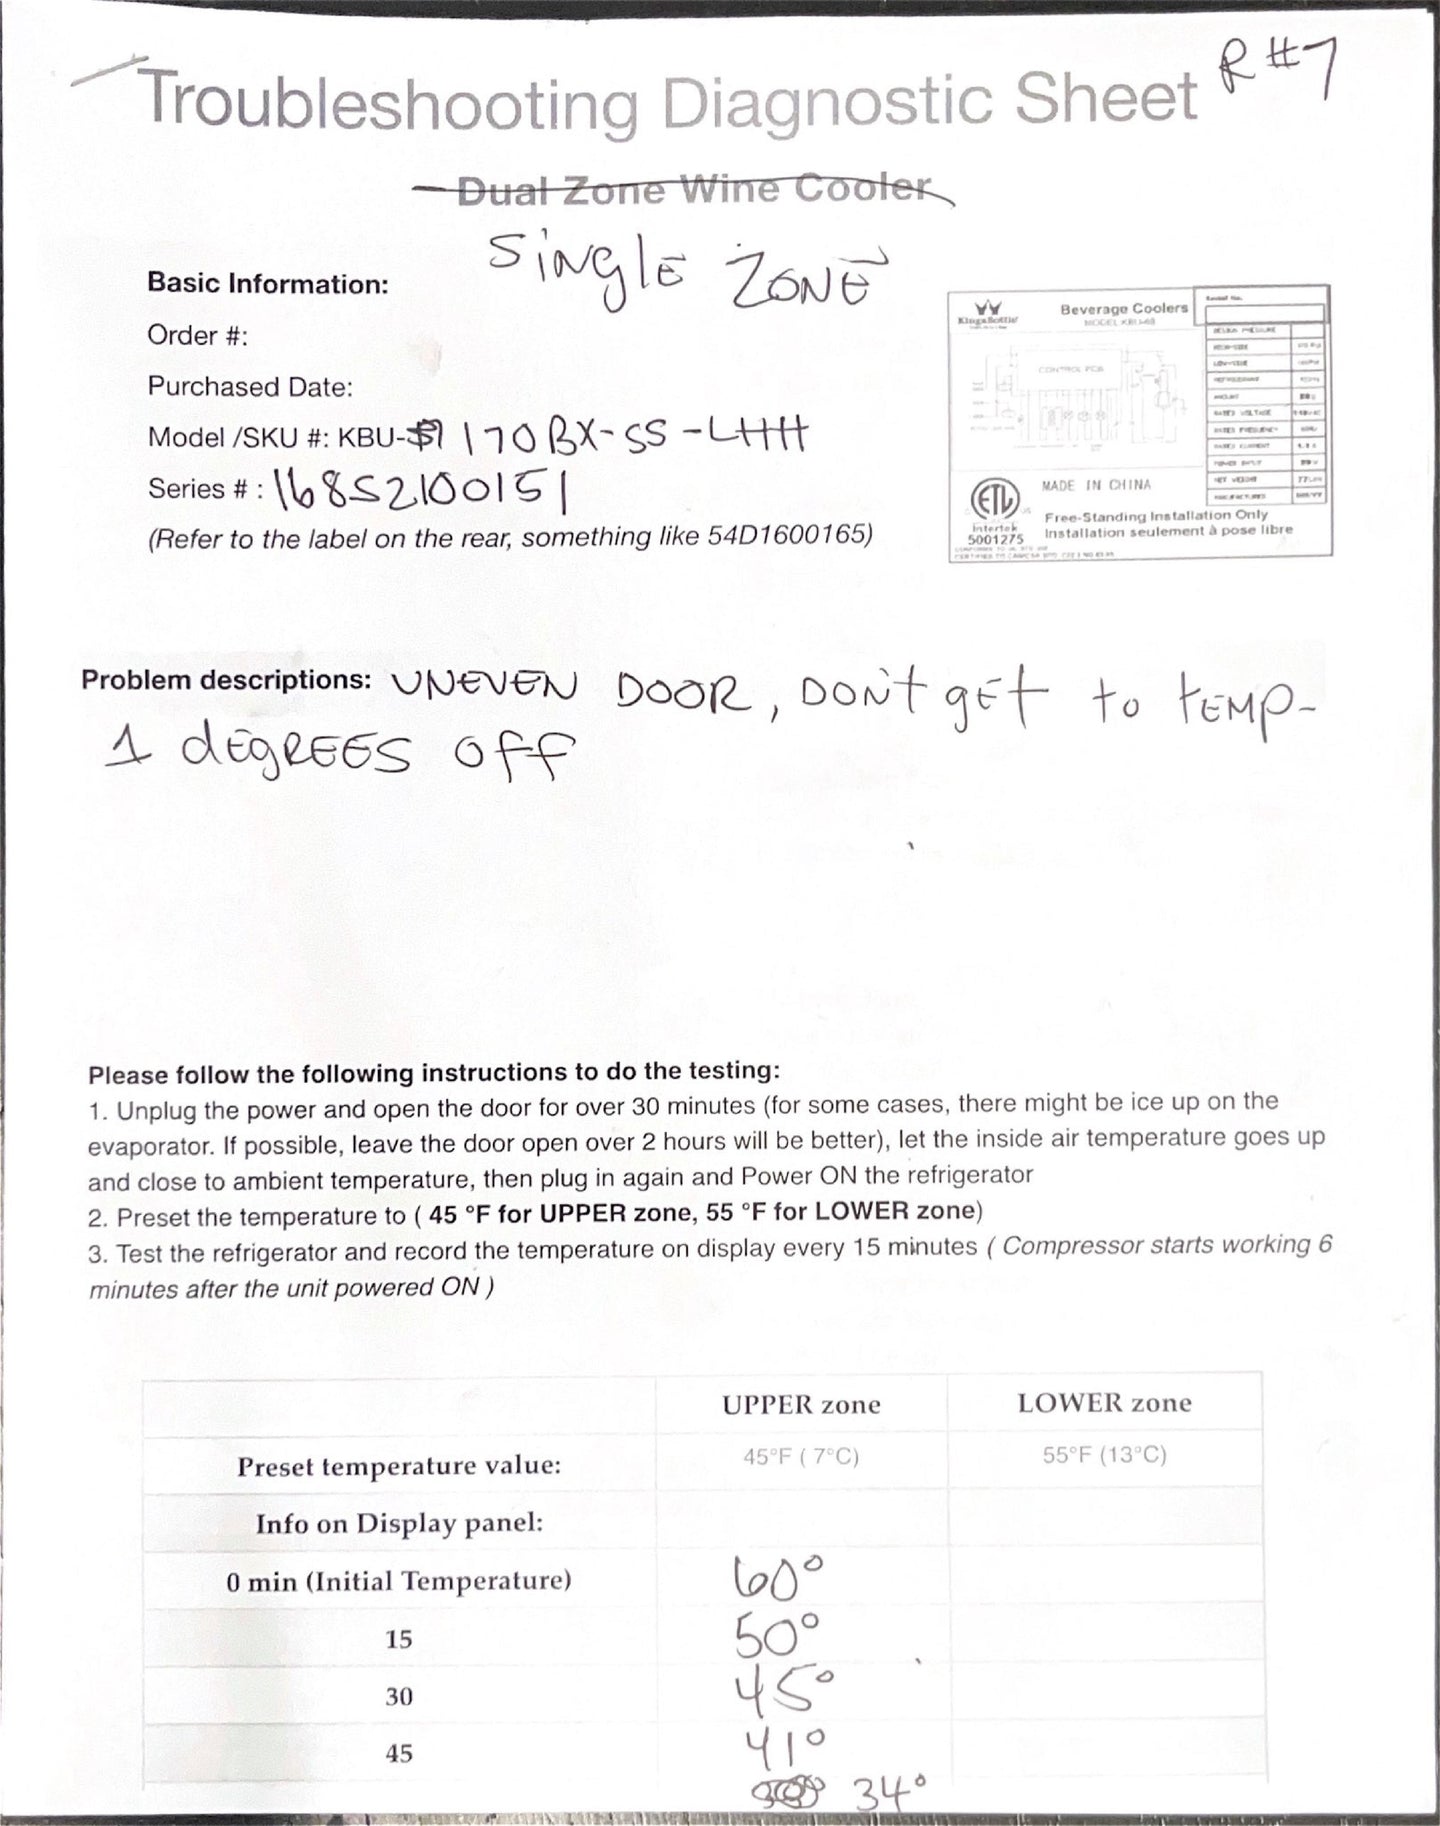 Troubleshooting Diagnostic Sheet R#7
Dual Zone Wine Cooler
SiNglE ZONE
Basic Information:
Order #:
Purchased Date:
Model /SKU #: KBU-170BX-SS-LHH
Series # : 16852100151
(Refer to the label on the rear, something like 54D1600165)
KingsBottle
Beverage Coolers
MODEL KBU-68
CONTROL PCB
ETL
Intertek
5001275
MADE IN CHINA
Free-Standing Installation Only
Installation seulement à pose libre
Problem descriptions: UNEVEN DOOR, DON't gEt to tEMP-
1 dEgREES Off
Please follow the following instructions to do the testing:
1. Unplug the power and open the door for over 30 minutes (for some cases, there might be ice up on the
evaporator. If possible, leave the door open over 2 hours will be better), let the inside air temperature goes up
and close to ambient temperature, then plug in again and Power ON the refrigerator
2. Preset the temperature to ( 45 °F for UPPER zone, 55 °F for LOWER zone)
3. Test the refrigerator and record the temperature on display every 15 minutes ( Compressor starts working 6
minutes after the unit powered ON )
UPPER zone LOWER zone
Preset temperature value: 45°F ( 7°C) 55°F (13°C)
Info on Display panel:
0 min (Initial Temperature) 60°
15 50°
30 45°
45 41°
34°